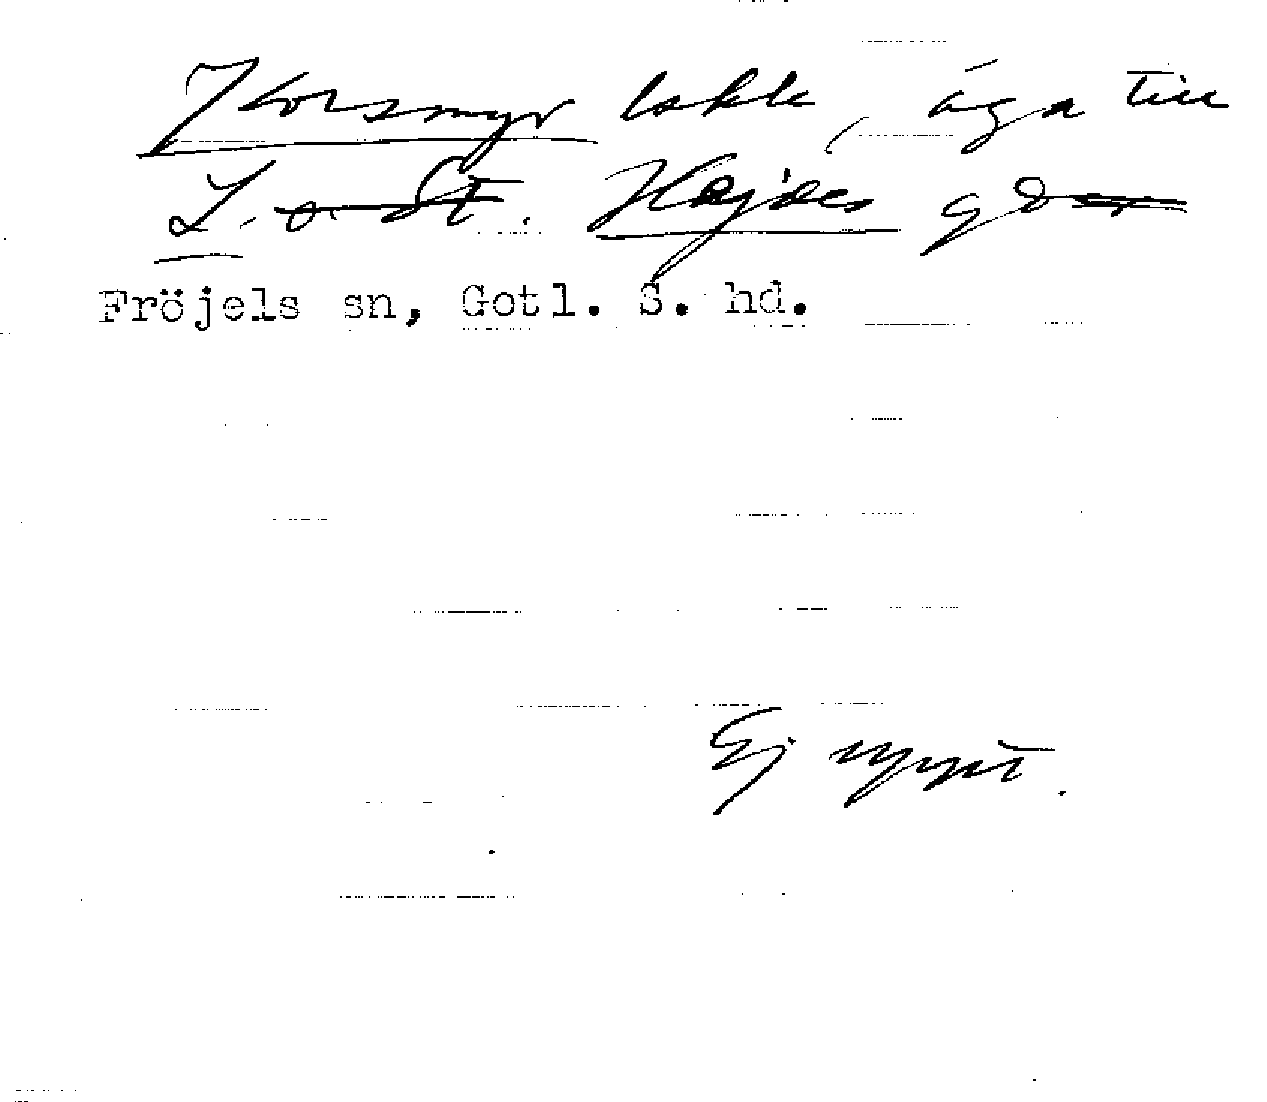 Korsmyr lokk, äga till
L. o. St. Hajdes gd
Fröjels sn, Gotl. S. hd.
Ej nytt.